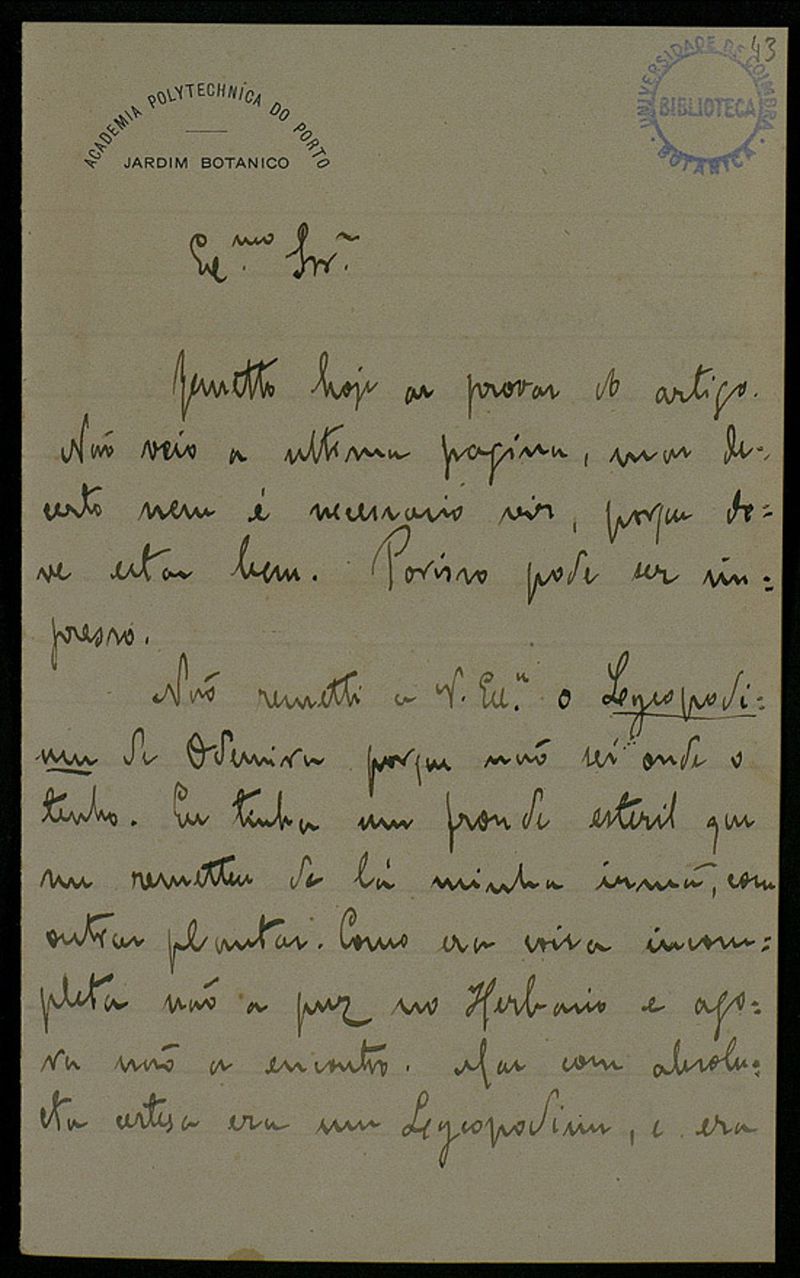 43
UNIVERSIDADE DE COIMBRA
BIBLIOTECA
BOTANICA
ACADEMIA POLYTECHNICA DO PORTO
JARDIM BOTANICO
Ex.mo Snr.
Remetto hoje as provas do artigo.
Não veio a ultima pagina, mas de-
certo nem é necessario vir, porque de=
ve estar bem. Porisso pode ser im=
presso.
Não remetti a V. Ex.ª o Lycopodi=
um de Odemira porque não sei onde o
tenho. Eu tinha um fronde esteril que
me remetteu de lá minha irmã, com
outras plantas. Como era coisa incom=
pleta não a puz no Herbario e ago=
ra não a encontro. Mas com absolu=
ta certesa era um Lycopodium, e era